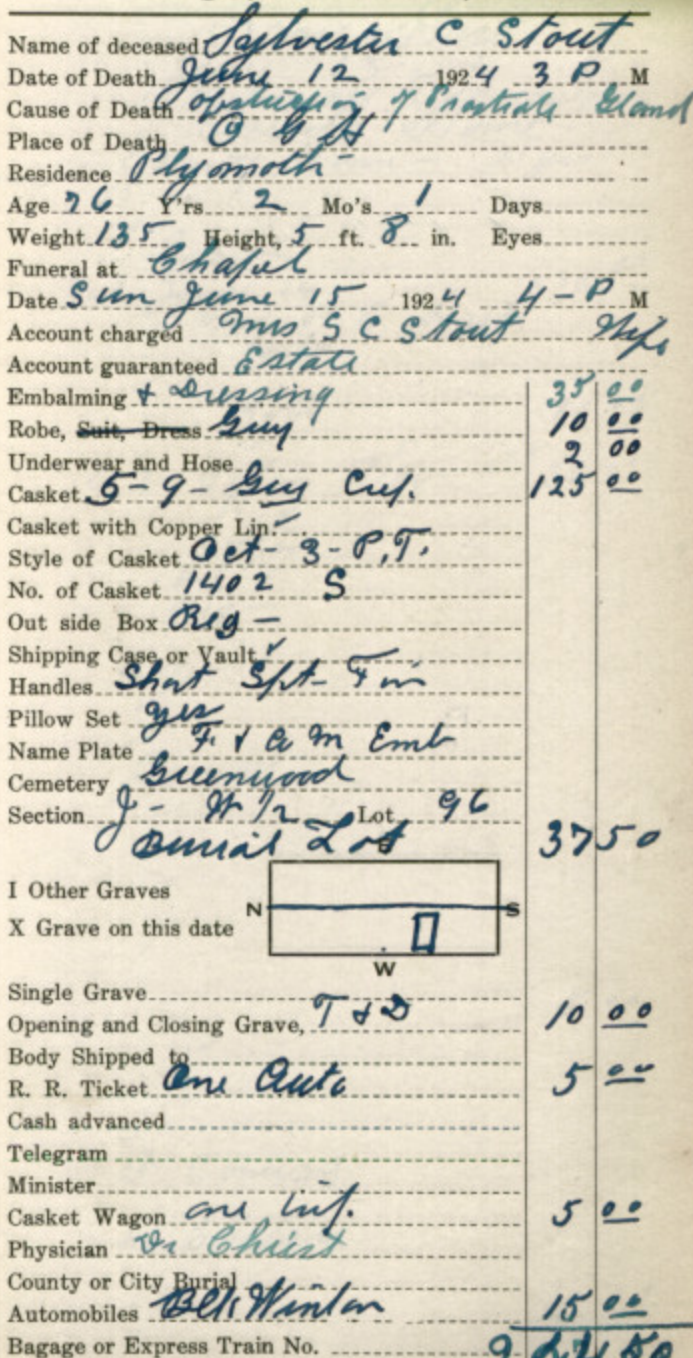 Name of deceased Sylvester C Stout
Date of Death June 12 1924 3 P M
Cause of Death obstruction of Prostrate Gland
Place of Death O G H
Residence Plymoth
Age 76 Y'rs 2 Mo's 1 Days
Weight 135 Height, 5 ft. 8 in. Eyes
Funeral at Chapel
Date Sun June 15 1924 4 - P M
Account charged Mrs S C Stout Wife
Account guaranteed Estate
Embalming & Dressing 35 00
Robe, Suit, Dress Guy 10 00
Underwear and Hose 2 00
Casket 5-9- Guy 125 00
Casket with Copper Lin.
Style of Casket Oct - 3 - P.T.
No. of Casket 1402 S
Out side Box Reg -
Shipping Case or Vault
Handles Short
Pillow Set yes
Name Plate F. & A M Emb
Cemetery Greenwood
Section J - W 1/2 Lot 96
Burial Lot 37 50
I Other Graves
N S
X Grave on this date
W
Single Grave
Opening and Closing Grave, T & D 10 00
Body Shipped to
R. R. Ticket One Auto 5 00
Cash advanced
Telegram
Minister
Casket Wagon one 5 00
Physician Dr Christ
County or City Burial
Automobiles Blk Winton 15 00
Bagage or Express Train No.